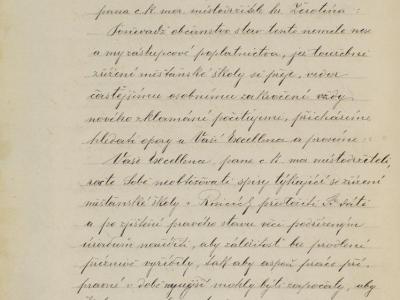 pana c. k. mor. místodržitele hr. Žerotína:
Poněvadž občanstvo stav tento nemile nese
a my zástupcové poplatnictva, jež toužebně
zřízení měšťanské školy si přeje, vidouce
častějšímu osobnímu zakročení vždy
nového zklamání pociťujeme, přicházíme
hledati opory u Vaší Excellence a prosíme:
Vaší Excellence, pane c. k. mor. místodržiteli,
račte Sobě neobtěžovati spisy týkající se zřízení
měšťanské školy v Rosicích předložiti si dáti
a po zjištění pravého stavu věci podřízeným
úřadům naříditi, aby záležitost bez prodlení
příznivě vyřídily, tak aby aspoň práce pří-
pravné v době nynější mohly býti započaty, aby